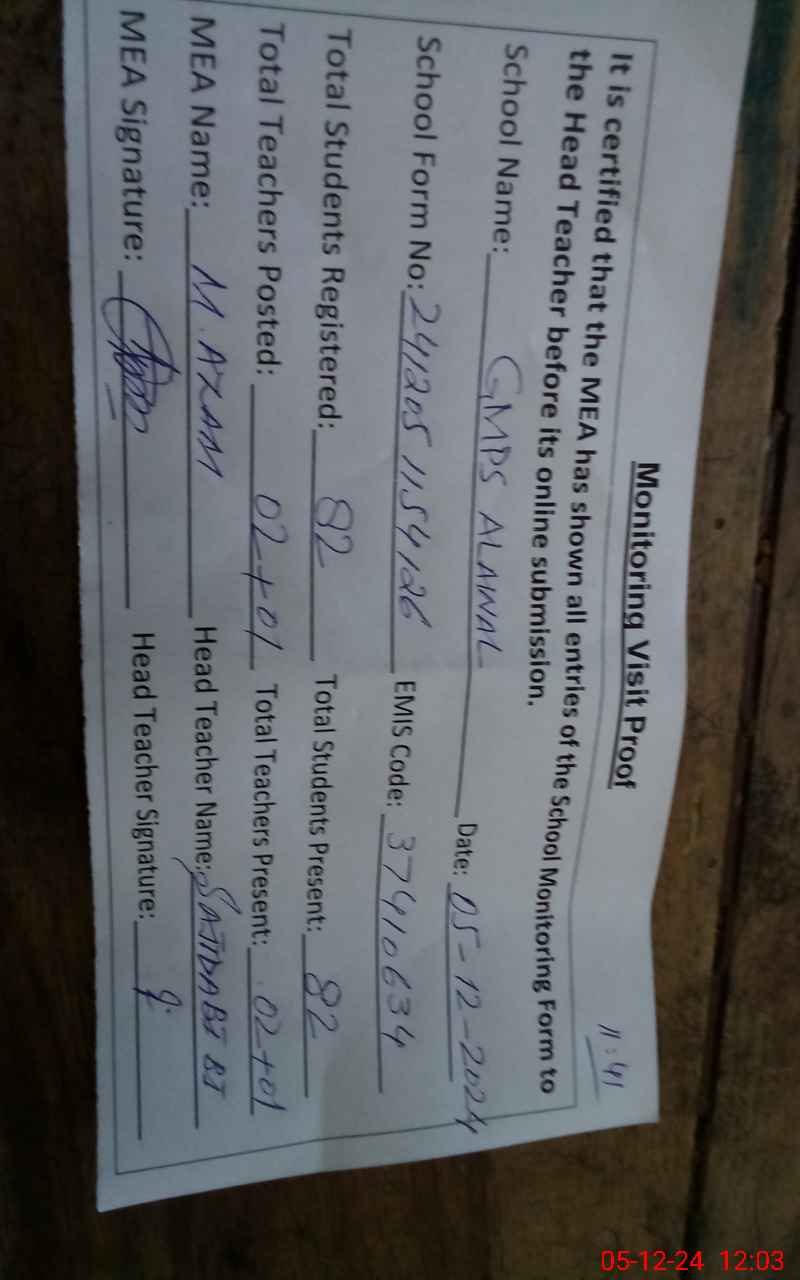 11:41
Monitoring Visit Proof
It is certified that the MEA has shown all entries of the School Monitoring Form to
the Head Teacher before its online submission.
School Name: GMPS ALAWAL Date: 05-12-2024
School Form No: 2412051154126 EMIS Code: 37410634
Total Students Registered: 82 Total Students Present: 82
Total Teachers Posted: 02+01 Total Teachers Present: 02+01
MEA Name: M. AZAM Head Teacher Name: SAJIDA BI BI
MEA Signature: Head Teacher Signature:
05-12-24 12:03